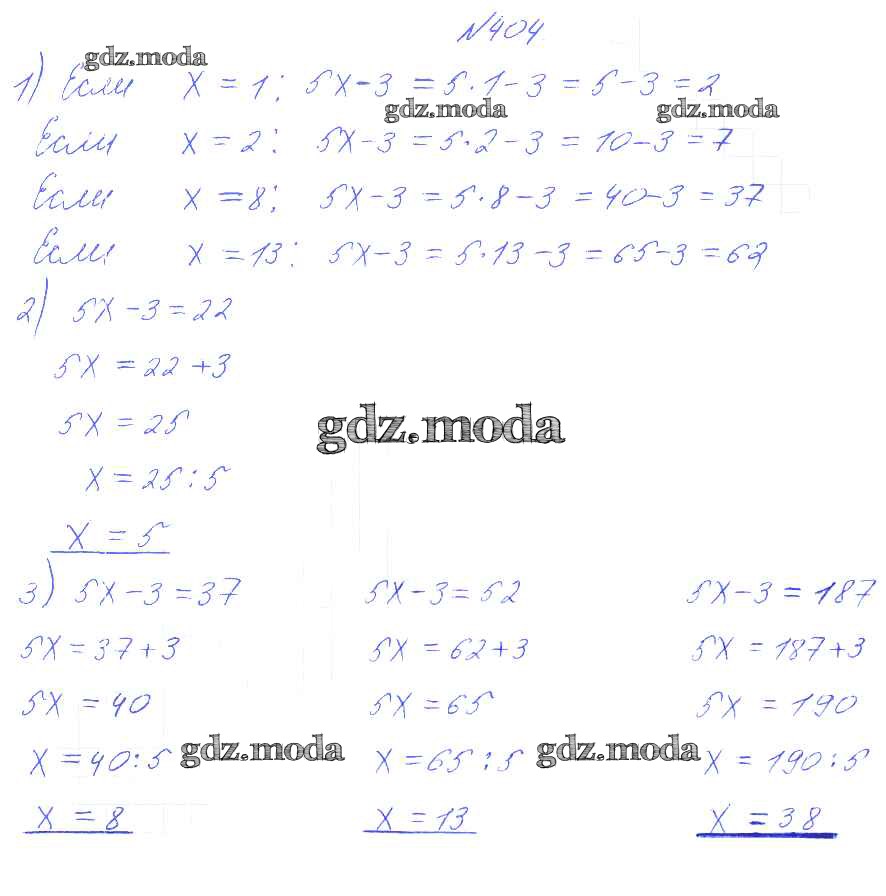 №404
gdz.moda
1) Если x = 1; 5x-3 = 5·1-3 = 5-3 = 2
gdz.moda gdz.moda
Если x = 2; 5x-3 = 5·2-3 = 10-3 = 7
Если x = 8; 5x-3 = 5·8-3 = 40-3 = 37
Если x = 13; 5x-3 = 5·13-3 = 65-3 = 62
2) 5x-3=22
5x = 22+3
gdz.moda
5x = 25
x = 25:5
x = 5
3) 5x-3=37 5x-3=52 5x-3=187
5x=37+3 5x=62+3 5x=187+3
5x=40 5x=65 5x=190
gdz.moda gdz.moda
x=40:5 x=65:5 x=190:5
x=8 x=13 x=38